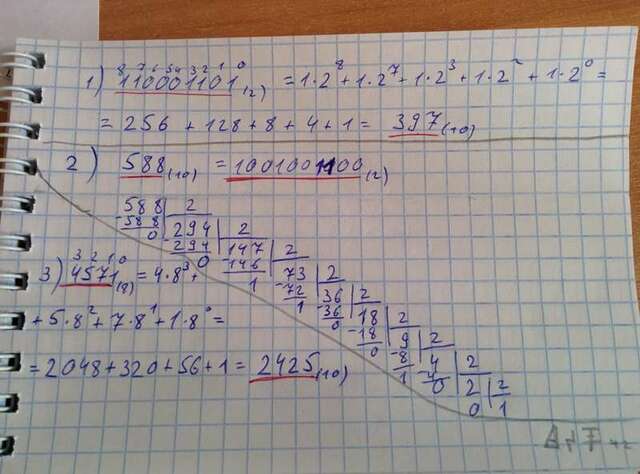 8 7 6 5 4 3 2 1 0
1) 110001101(2) = 1·2⁸ + 1·2⁷ + 1·2³ + 1·2² + 1·2⁰ =
= 256 + 128 + 8 + 4 + 1 = 397(10)
2) 588(10) = 1001001100(2)
588 | 2
-588 | 294 | 2
0 | -294 | 147 | 2
0 | -146 | 73 | 2
1 | -72 | 36 | 2
1 | -36 | 18 | 2
0 | -18 | 9 | 2
0 | -8 | 4 | 2
1 | -4 | 2 | 2
0 | 0 | 1
3 2 1 0
3) 4571(8) = 4·8³ +
+ 5·8² + 7·8¹ + 1·8⁰ =
= 2048 + 320 + 56 + 1 = 2425(10)